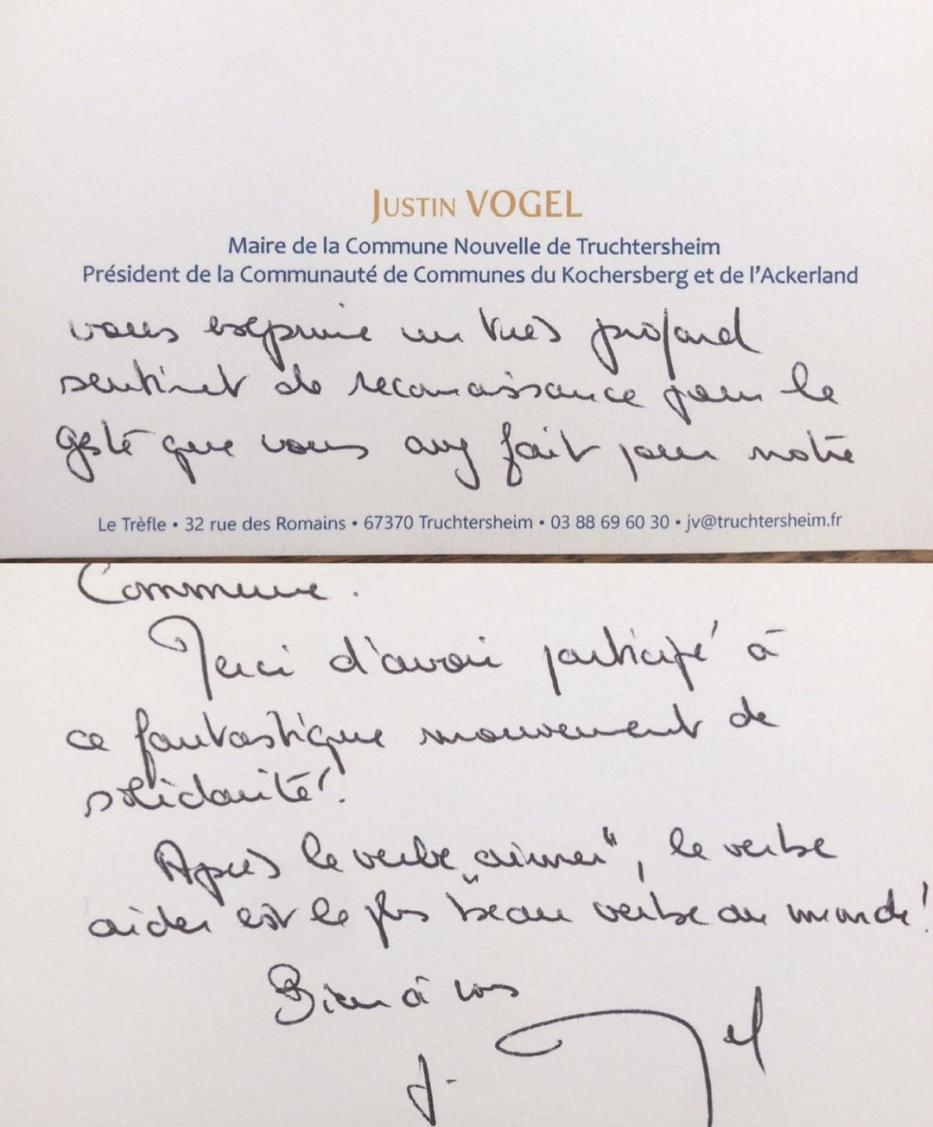 Justin VOGEL
Maire de la Commune Nouvelle de Truchtersheim
Président de la Communauté de Communes du Kochersberg et de l'Ackerland
vous exprime un très profond
sentiment de reconnaissance pour le
geste que vous avez fait pour notre
Le Trèfle • 32 rue des Romains • 67370 Truchtersheim • 03 88 69 60 30 • jv@truchtersheim.fr
Commune.
Merci d'avoir participé à
ce fantastique mouvement de
solidarité!
Après le verbe "aimer", le verbe
"aider" est le plus beau verbe au monde!
Bien à vous
J. Vogel